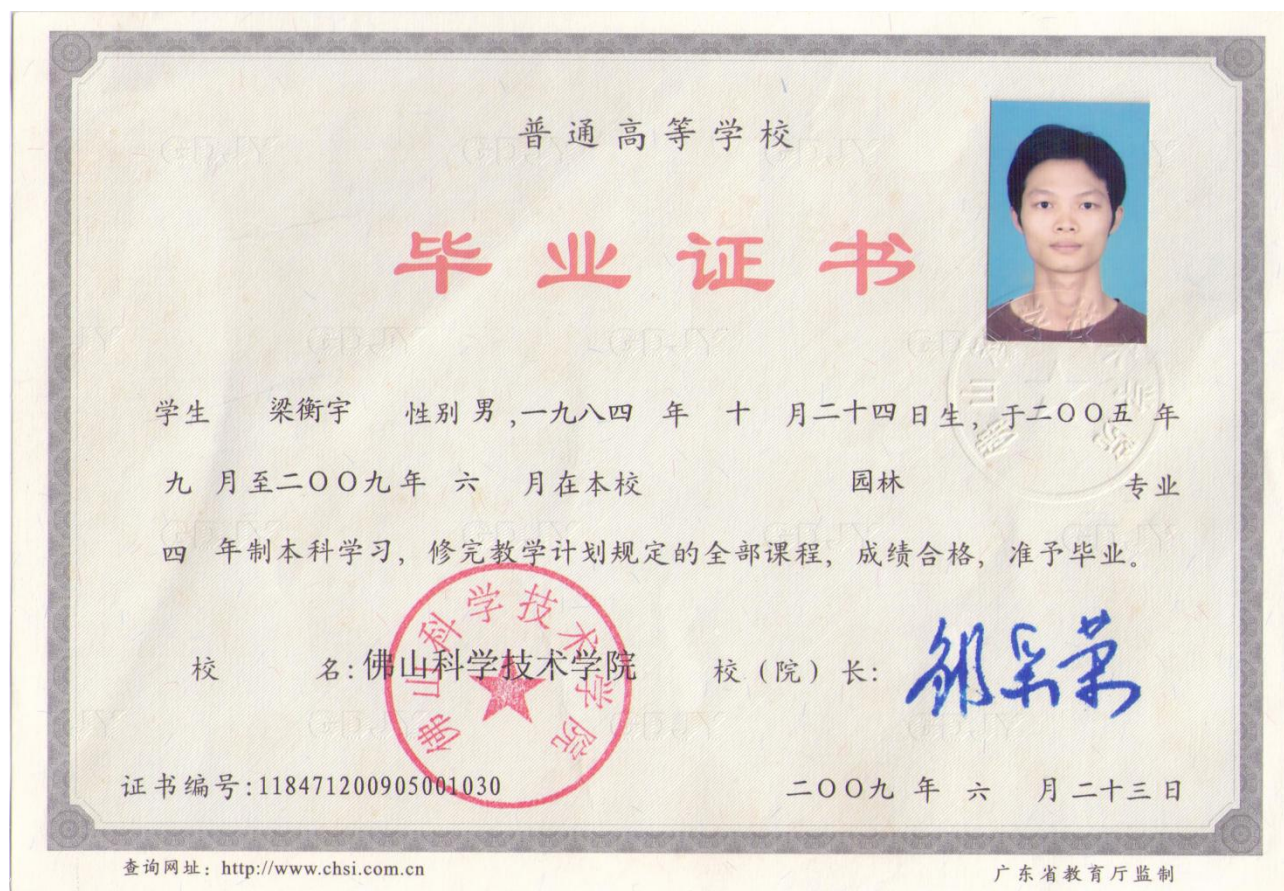 普通高等学校
毕业证书
学生 梁衡宇 性别 男 ,一九八四 年 十 月二十四日生, 于二〇〇五 年
九 月至二〇〇九年 六 月在本校 园林 专业
四 年制本科学习, 修完教学计划规定的全部课程, 成绩合格, 准予毕业。
校 名: 佛山科学技术学院 校 (院) 长:
佛山科学技术学院
证书编号:118471200905001030 二〇〇九 年 六 月 二十三 日
查询网址: http://www.chsi.com.cn 广东省教育厅监制